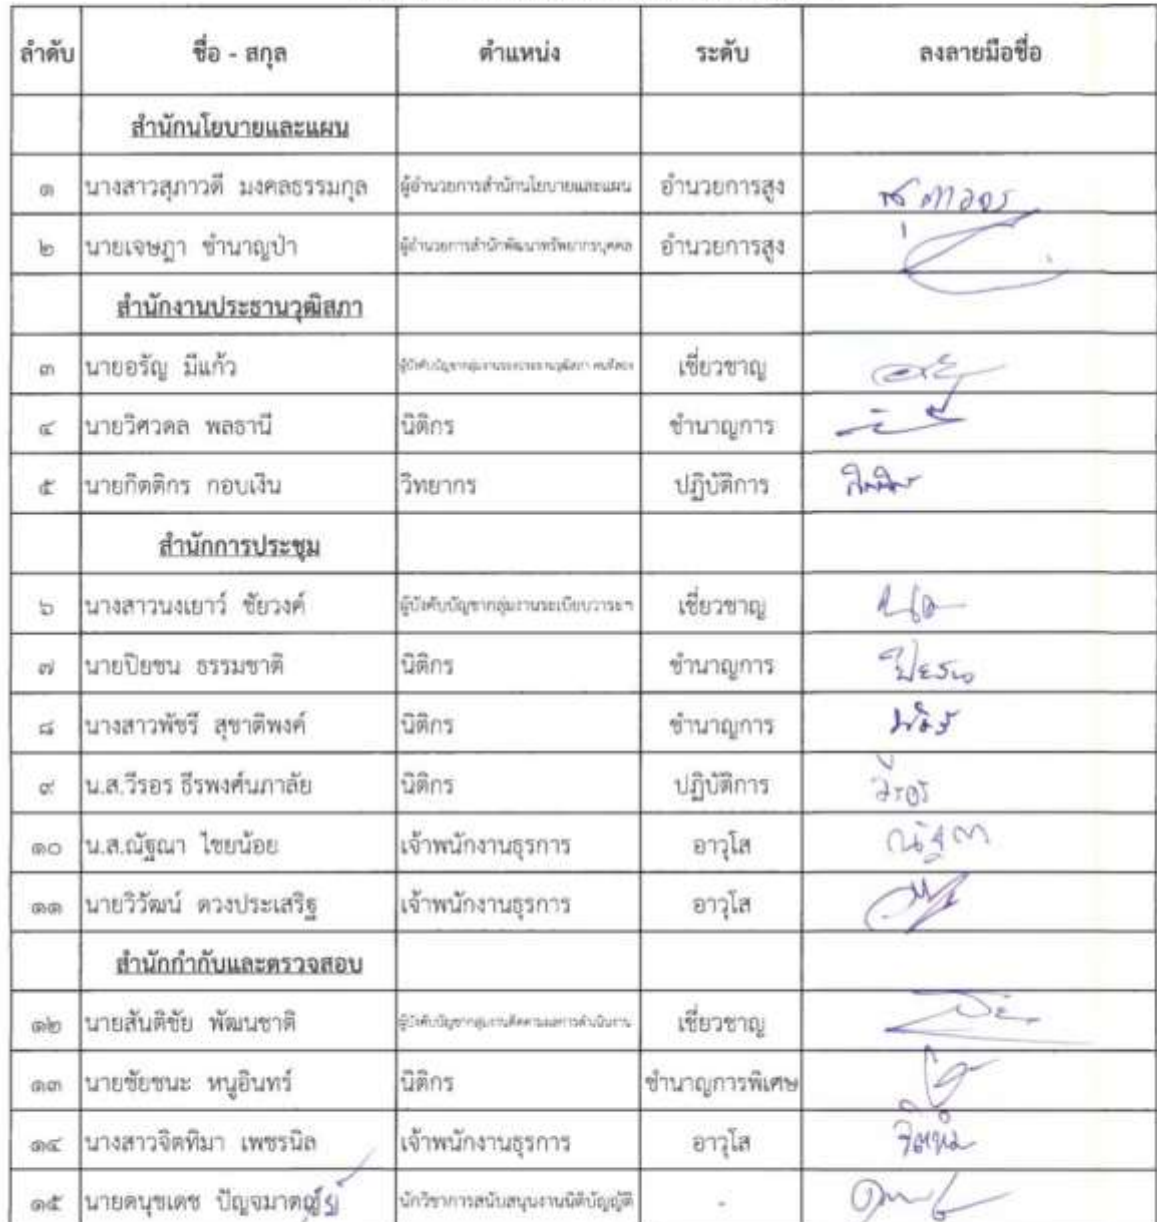 ลำดับ ชื่อ - สกุล ตำแหน่ง ระดับ ลงลายมือชื่อ
สำนักนโยบายและแผน
๑ นางสาวสุภาวดี มงคลธรรมกุล ผู้อำนวยการสำนักนโยบายและแผน อำนวยการสูง
๒ นายเจษฎา ชำนาญป่า ผู้อำนวยการสำนักพัฒนาทรัพยากรบุคคล อำนวยการสูง
สำนักงานประธานวุฒิสภา
๓ นายอรัญ มีแก้ว ผู้บังคับบัญชากลุ่มงานรองประธานวุฒิสภา คนที่สอง เชี่ยวชาญ
๔ นายวิศวดล พลธานี นิติกร ชำนาญการ
๕ นายกิตติกร กอบเงิน วิทยากร ปฏิบัติการ
สำนักการประชุม
๖ นางสาวนงเยาว์ ชัยวงค์ ผู้บังคับบัญชากลุ่มงานระเบียบวาระฯ เชี่ยวชาญ
๗ นายปิยชน ธรรมชาติ นิติกร ชำนาญการ ปิยชน
๘ นางสาวพัชรี สุชาติพงค์ นิติกร ชำนาญการ พัชรี
๙ น.ส.วีรอร ธีรพงศ์นภาลัย นิติกร ปฏิบัติการ วีรอร
๑๐ น.ส.ณัฐณา ไชยน้อย เจ้าพนักงานธุรการ อาวุโส ณัฐณา
๑๑ นายวิวัฒน์ ดวงประเสริฐ เจ้าพนักงานธุรการ อาวุโส
สำนักกำกับและตรวจสอบ
๑๒ นายสันติชัย พัฒนชาติ ผู้บังคับบัญชากลุ่มงานติดตามผลการดำเนินงาน เชี่ยวชาญ
๑๓ นายชัยชนะ หนูอินทร์ นิติกร ชำนาญการพิเศษ
๑๔ นางสาวจิตทิมา เพชรนิล เจ้าพนักงานธุรการ อาวุโส จิตทิมา
๑๕ นายดนุชเดช นักวิชาการสนับสนุนงานนิติบัญญัติ -